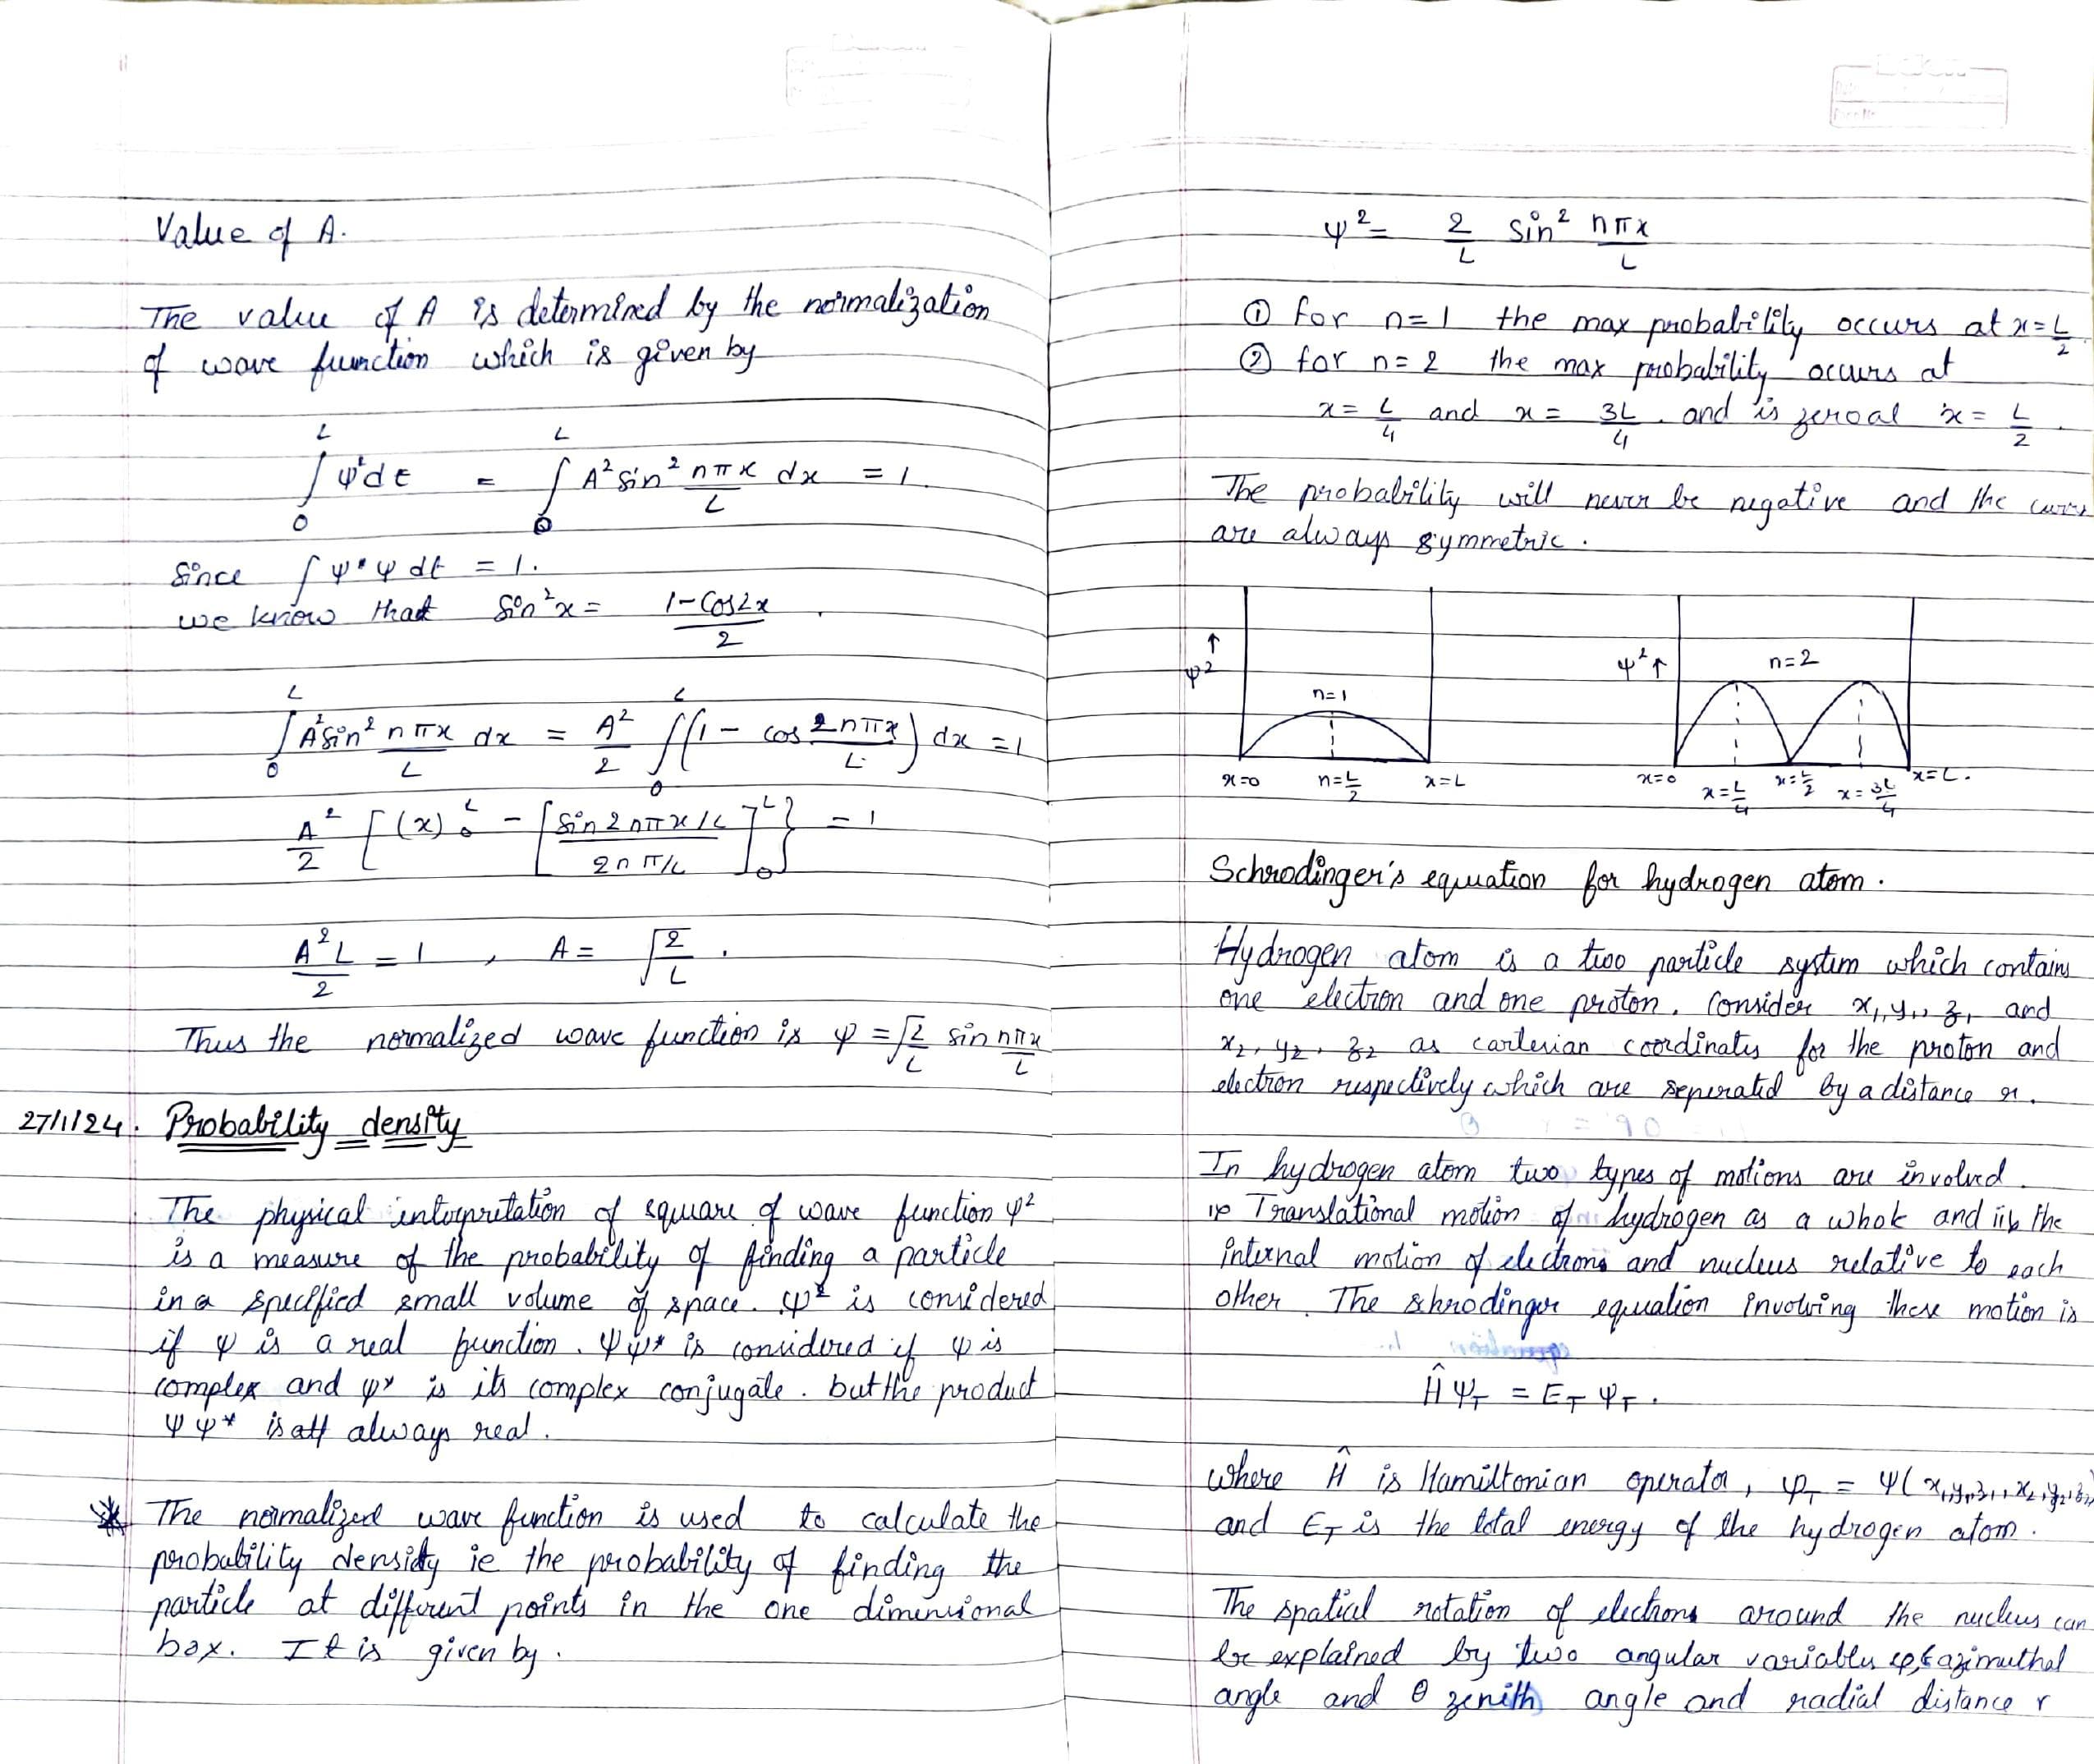 Value of A.
The value of A is determined by the normalization
of wave function which is given by
∫₀ᴸ ψ²dt = ∫₀ᴸ A² sin² nπx/L dx = 1.
Since ∫ψ*ψ dt = 1.
we know that sin²x = (1-Cos2x)/2
∫₀ᴸ A² sin² nπx/L dx = A²/2 ∫₀ᴸ (1 - cos 2nπx/L) dx = 1
A²/2 [(x)₀ᴸ - [sin 2nπx/L / 2nπ/L]₀ᴸ} = 1
A²L/2 = 1, A = √(2/L).
Thus the normalized wave function is ψ = √(2/L) sin nπx/L
27/1/24. Probability density
The physical intorpretation of square of wave function ψ²
is a measure of the probability of finding a particle
in a specified small volume of space. ψ² is considered
if ψ is a real function. ψψ* is considered if ψ is
complex and ψ* is its complex conjugate. but the product
ψψ* is always real.
The normalized wave function is used to calculate the
probability density ie the probability of finding the
particle at different points in the one dimensional
box. It is given by.
ψ² = 2/L sin² nπx/L
① for n=1 the max probability occurs at x=L/2.
② for n=2 the max probability occurs at
x = L/4 and x = 3L/4. and is zero at x = L/2.
The probability will never be negative and the
are always symmetric.
↑
ψ²
n=1
x=0 n=L/2 x=L
ψ²↑
n=2
x=0 x=L/4 x=L/2 x=3L/4 x=L.
Schrodinger's equation for hydrogen atom.
Hydrogen atom is a two particle system which contains
one electron and one proton. Consider x₁, y₁, z₁ and
x₂, y₂, z₂ as cartesian coordinates for the proton and
electron respectively which are seperated by a distance r.
In hydrogen atom two types of motions are involved.
i> Translational motion of hydrogen as a whole and ii> the
internal motion of electrons and nucleus relative to each
other. The shrodinger equation involving these motion is
Ĥ ψ_T = E_T ψ_T.
where Ĥ is Hamiltonian operator, ψ_T = ψ(x₁,y₁,z₁,x₂,y₂,z₂)
and E_T is the total energy of the hydrogen atom.
The spatial rotation of electrons around the nucleus can
be explained by two angular variables azimuthal
angle and θ zenith angle and radial distance r